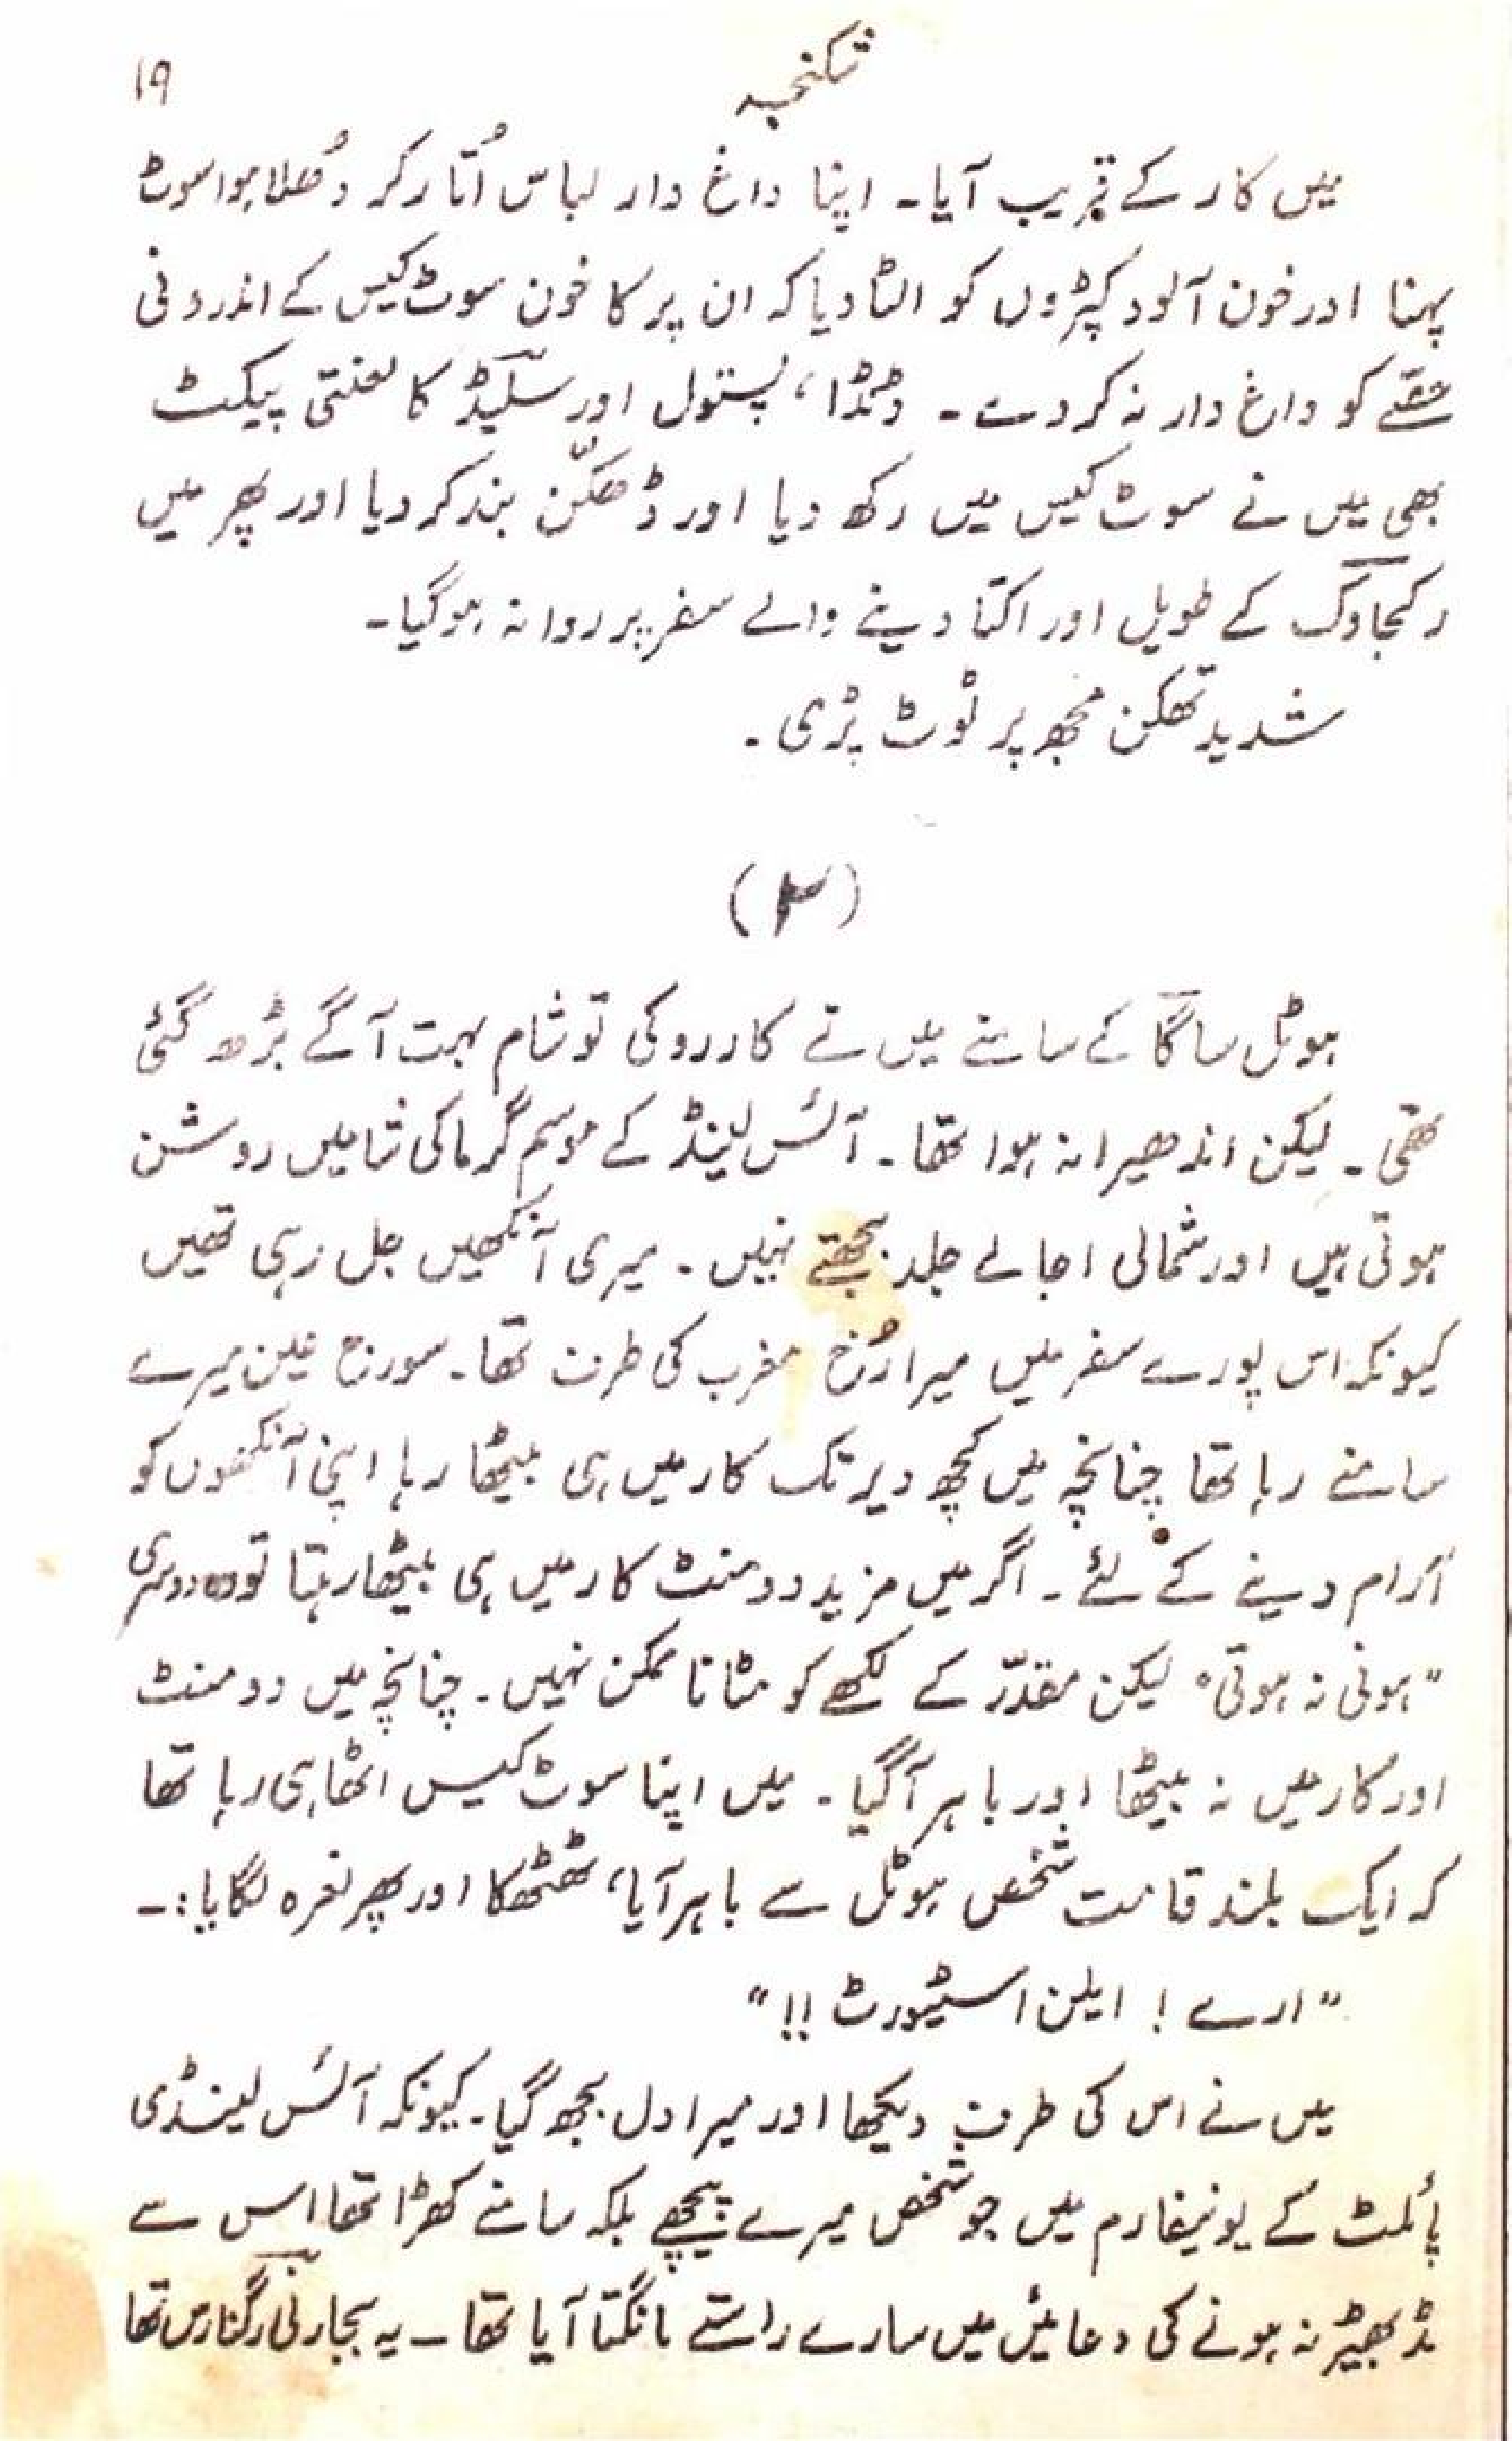 شکنجہ
۱۹
میں کار کے قریب آیا۔ اپنا داغ دار لباس اُتار کر دُھلا ہوا سوٹ
پہنا اور خون آلود کپڑوں کو الٹا دیا کہ ان پر کا خون سوٹ کیس کے اندرونی
حصّے کو داغ دار نہ کر دے۔ ڈنڈا، پستول اور سلیڈ کا لعنتی پیکٹ
بھی میں نے سوٹ کیس میں رکھ دیا اور ڈھکّن بند کر دیا اور پھر میں
رکجاوک کے طویل اور اکتا دینے والے سفر پر روانہ ہو گیا۔
شدید تھکن مجھ پر ٹوٹ پڑی۔
(۲)
ہوٹل ساگا کے سامنے میں نے کار روکی تو شام بہت آگے بڑھ گئی
تھی۔ لیکن اندھیرا نہ ہوا تھا۔ آئس لینڈ کے موسم گرما کی شامیں روشن
ہوتی ہیں اور شمالی اجالے جلد بجھتے نہیں۔ میری آنکھیں جل رہی تھیں
کیونکہ اس پورے سفر میں میرا رُخ مغرب کی طرف تھا۔ سورج عین میرے
سامنے رہا تھا چنانچہ میں کچھ دیر تک کار میں ہی بیٹھا رہا اپنی آنکھوں کو
آرام دینے کے لئے۔ اگر میں مزید دو منٹ کار میں ہی بیٹھا رہتا تو وہ دوسری
"ہونی نہ ہوتی" لیکن مقدّر کے لکھے کو مٹانا ممکن نہیں۔ چنانچہ میں دو منٹ
اور کار میں نہ بیٹھا اور باہر آگیا۔ میں اپنا سوٹ کیس اٹھا ہی رہا تھا
کہ ایک بلند قامت شخص ہوٹل سے باہر آیا، ٹھٹھکا اور پھر نعرہ لگایا:۔
"ارے! ایلن اسٹیورٹ!!"
میں نے اس کی طرف دیکھا اور میرا دل بجھ گیا۔ کیونکہ آئس لینڈی
پائلٹ کے یونیفارم میں جو شخص میرے پیچھے بلکہ سامنے کھڑا تھا اس سے
مڈبھیڑ نہ ہونے کی دعائیں میں سارے راستے مانگتا آیا تھا۔ یہ بجارنی رگنارسن تھا